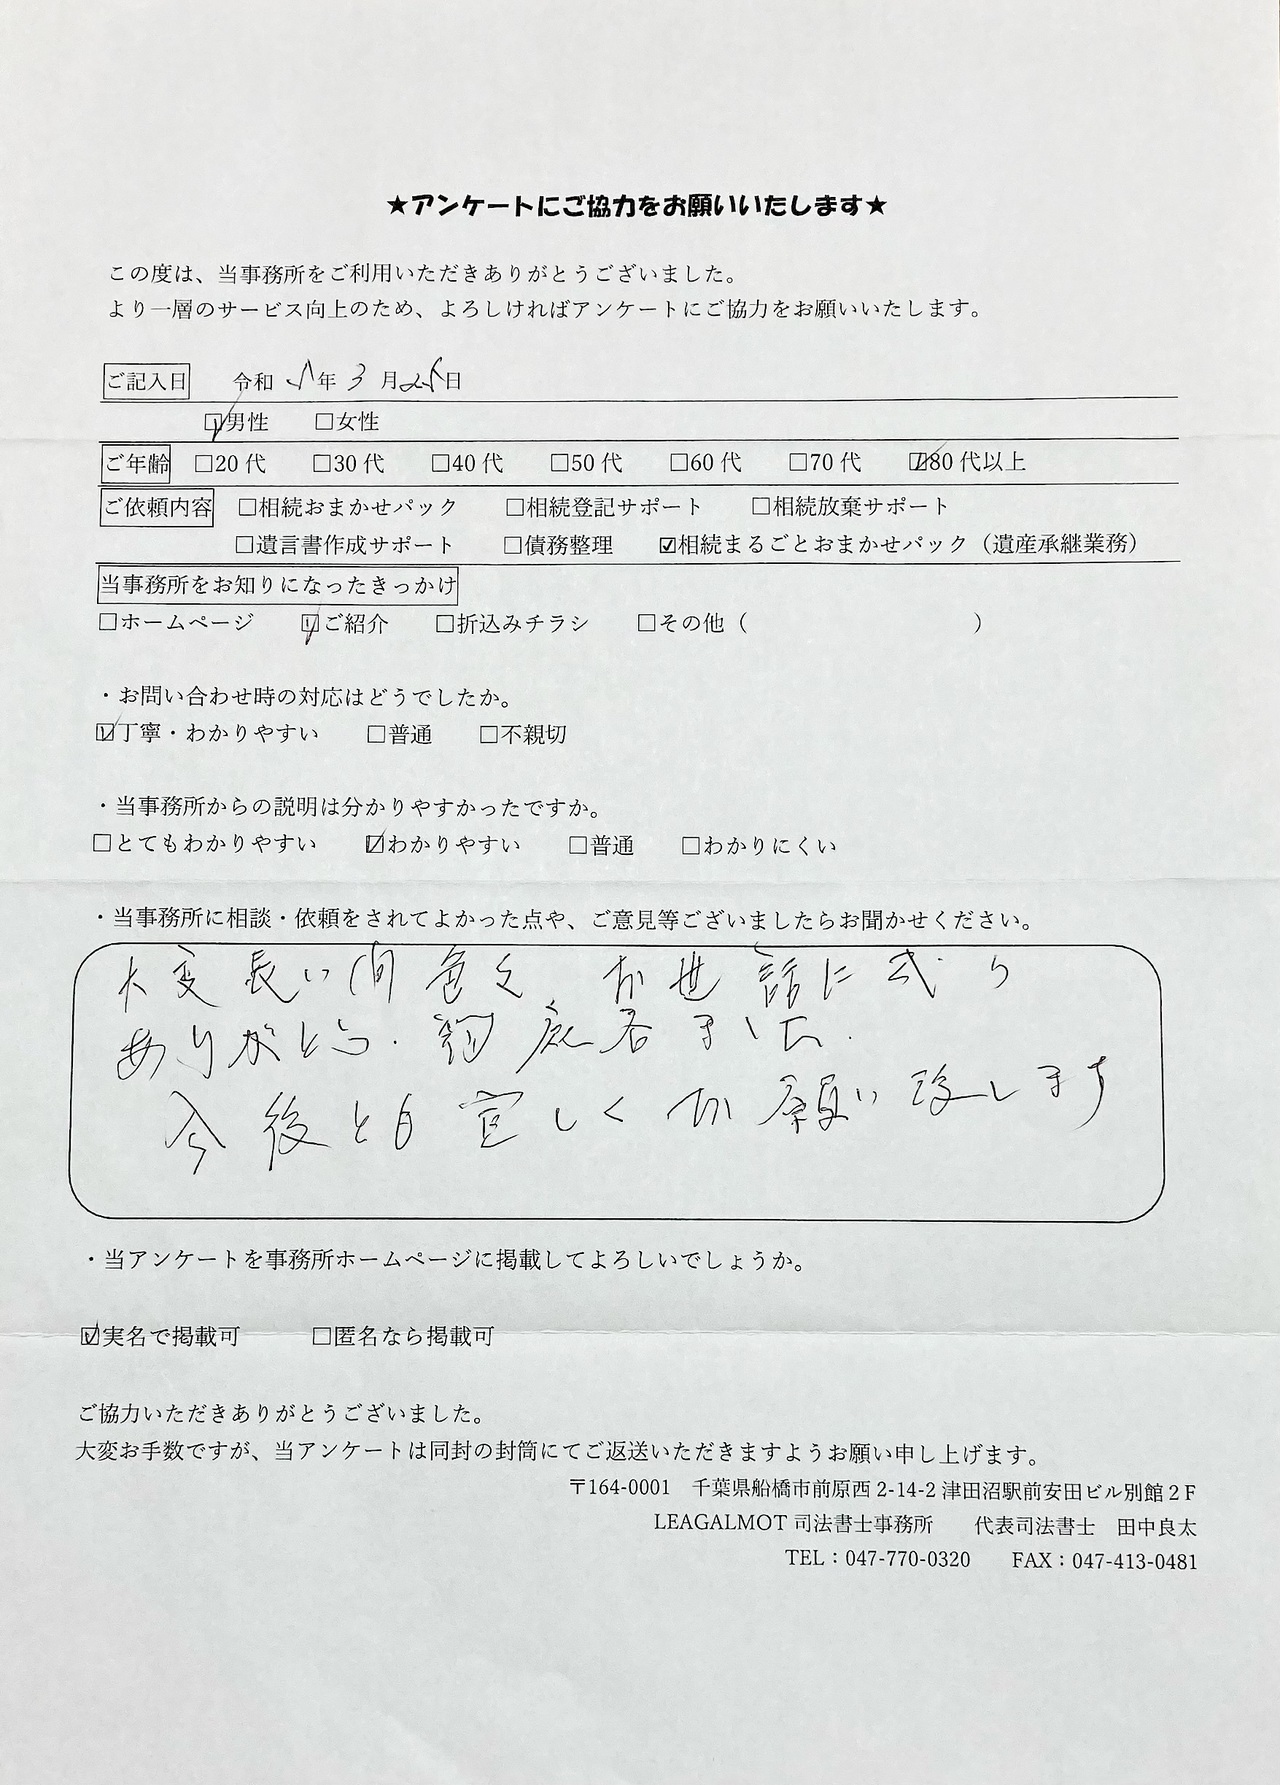 ★アンケートにご協力をお願いいたします★
この度は、当事務所をご利用いただきありがとうございました。
より一層のサービス向上のため、よろしければアンケートにご協力をお願いいたします。
ご記入日 令和 5年 3 月25日
☑男性 □女性
ご年齢 □20 代 □30 代 □40 代 □50 代 □60 代 □70 代 ☑80 代以上
ご依頼内容 □相続おまかせパック □相続登記サポート □相続放棄サポート
□遺言書作成サポート □債務整理 ☑相続まるごとおまかせパック（遺産承継業務）
当事務所をお知りになったきっかけ
□ホームページ ☑ご紹介 □折込みチラシ □その他（ ）
・お問い合わせ時の対応はどうでしたか。
☑丁寧・わかりやすい □普通 □不親切
・当事務所からの説明は分かりやすかったですか。
□とてもわかりやすい ☑わかりやすい □普通 □わかりにくい
・当事務所に相談・依頼をされてよかった点や、ご意見等ございましたらお聞かせください。
大変長い間色々 お世話に成り
ありがとう.御座居ました.
今後とも宜しくお願い致します
・当アンケートを事務所ホームページに掲載してよろしいでしょうか。
☑実名で掲載可 □匿名なら掲載可
ご協力いただきありがとうございました。
大変お手数ですが、当アンケートは同封の封筒にてご返送いただきますようお願い申し上げます。
〒164-0001 千葉県船橋市前原西 2-14-2 津田沼駅前安田ビル別館２F
LEAGALMOT 司法書士事務所 代表司法書士 田中良太
TEL：047-770-0320 FAX：047-413-0481